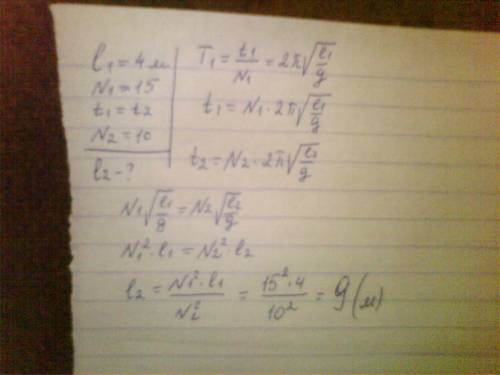 l₁ = 4 м
N₁ = 15
t₁ = t₂
N₂ = 10
l₂ - ?
T₁ = t₁/N₁ = 2π√(l₁/g)
t₁ = N₁ · 2π√(l₁/g)
t₂ = N₂ · 2π√(l₂/g)
N₁√(l₁/g) = N₂√(l₂/g)
N₁² · l₁ = N₂² · l₂
l₂ = N₁² · l₁/N₂² = 15² · 4/10² = 9 (м)